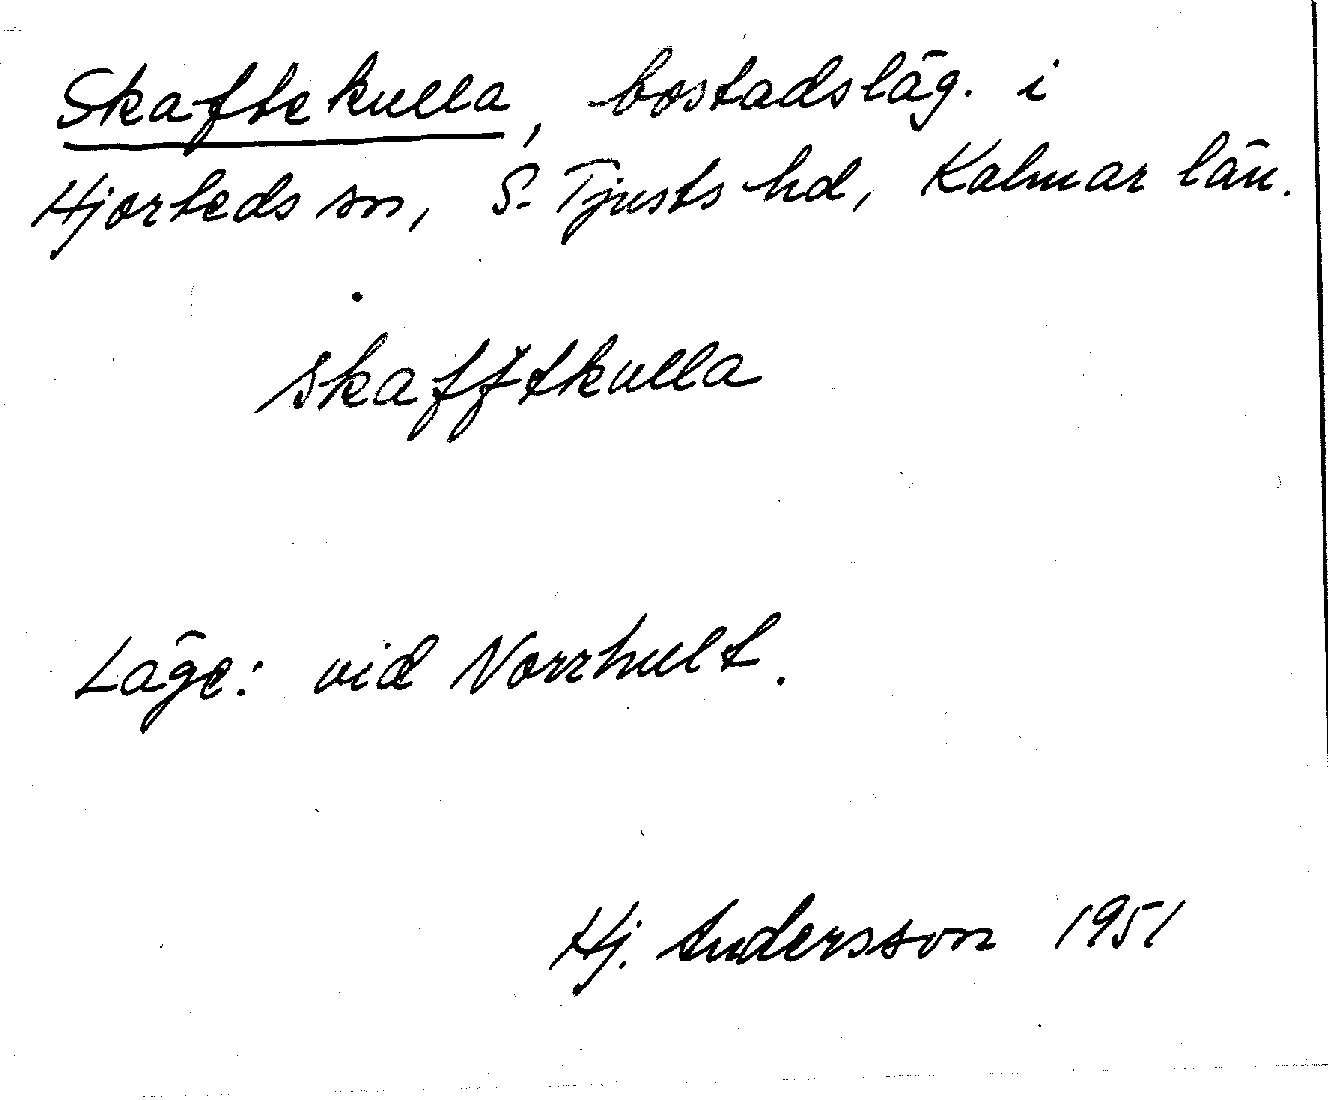 Skaftekulla, bostadsläg. i
Hjorteds sn, S. Tjusts hd, Kalmar län.
skafftkulla
Läge: vid Norrhult.
Hj. Andersson 1951